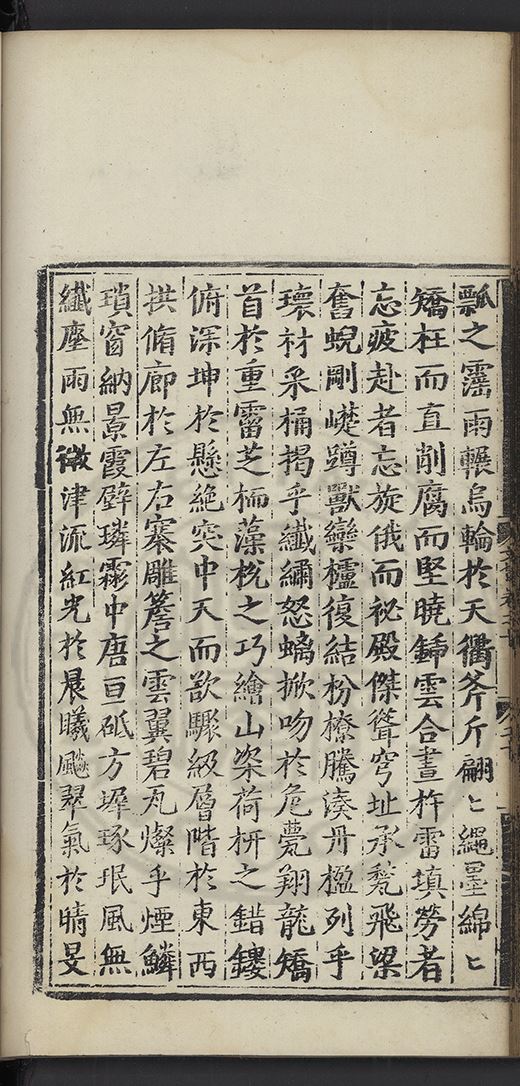 瓢之霪雨輾烏輪於天衢斧斤翩〻繩墨綿〻
矯枉而直削腐而堅曉鍤雲合晝杵雷填勞者
忘疲赴者忘旋俄而祕殿傑聳穹址承甍飛梁
奮蜺剛㠑蹲獸欒櫨復結枌橑騰湊丹楹列乎
瓌材釆桷揭乎纖繡怒螭掀吻於危甍翔龍矯
首於重霤芝栭藻梲之巧繪山楶荷枅之錯鏤
俯深坤於懸絶突中天而欲驟級層階於東西
拱脩廊於左右騫雕簷之雲翼碧瓦燦乎煙鱗
瑣窗納景霞壁璘霦中唐亘砥方墀琢珉風無
纖塵雨無微津流紅光於晨曦飈翠氣於晴旻